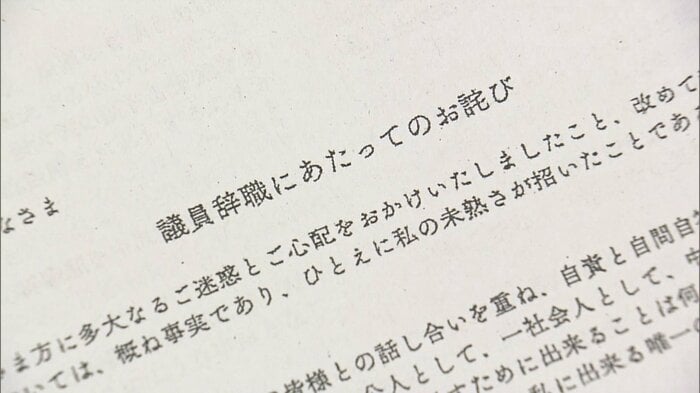 議員辞職にあたってのお詫び
なさま
ま方に多大なるご迷惑とご心配をおかけいたしましたこと、改めて
いては、概ね事実であり、ひとえに私の未熟さが招いたことであ
皆様との話し合いを重ね、自責と自問自
公人として、一社会人として、中
すために出来ることは何
私に出来る唯一